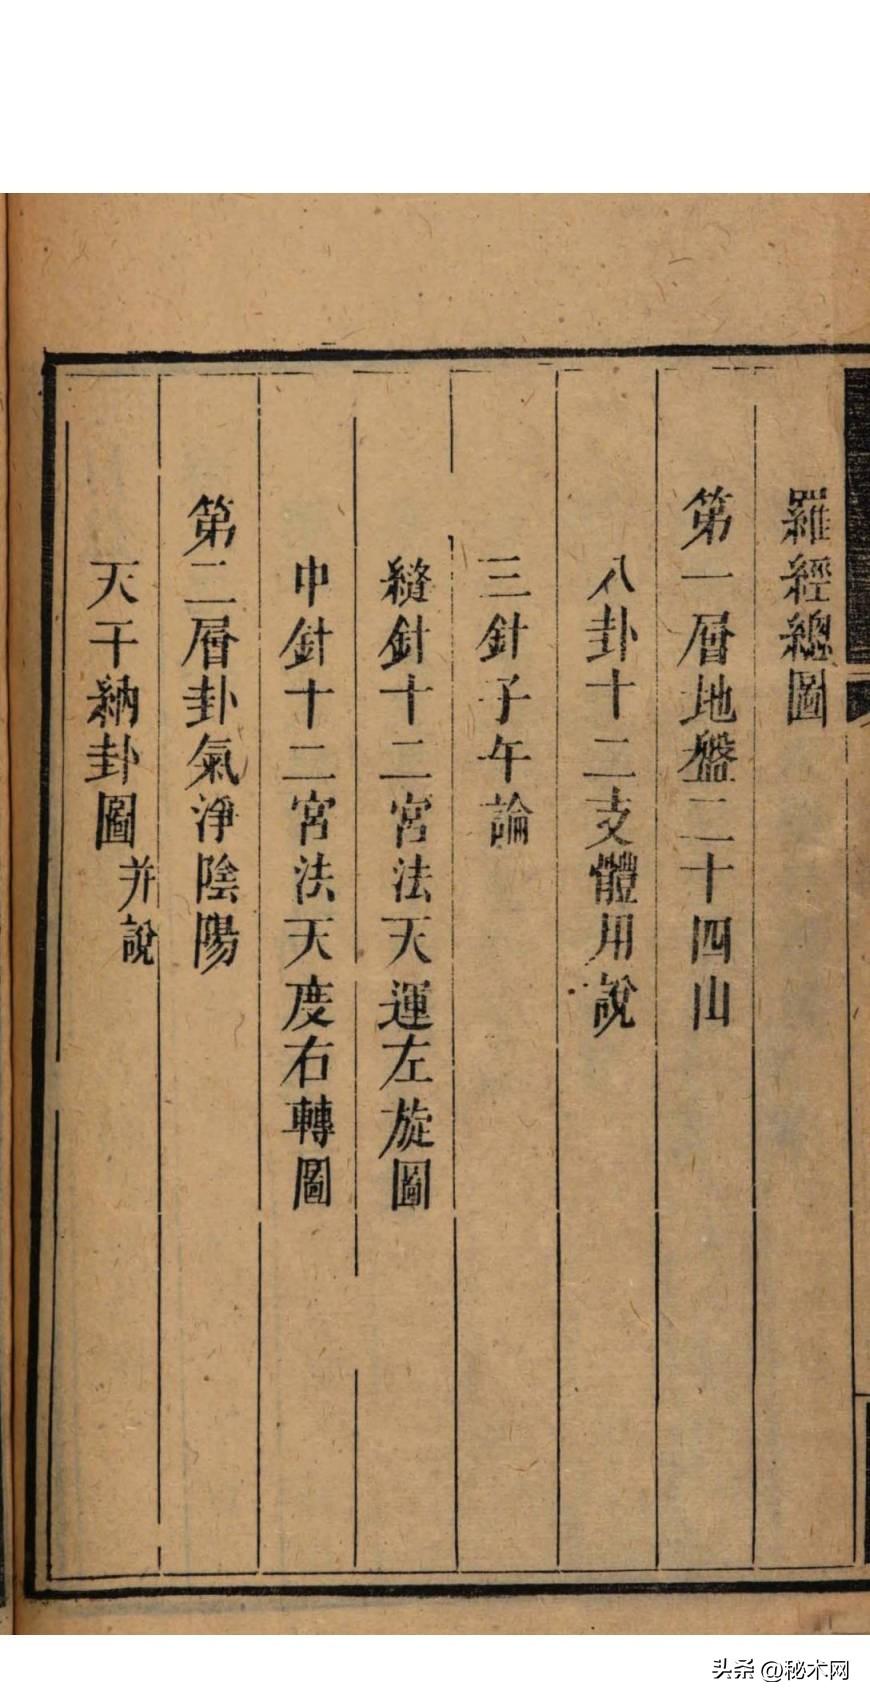 羅經總圖
第一層地盤二十四山
八卦十二支體用說
三針子午論
縫針十二宮法天運左旋圖
中針十二宮法天度右轉圖
第二層卦氣淨陰陽
天干納卦圖并說
头条 @秘术网